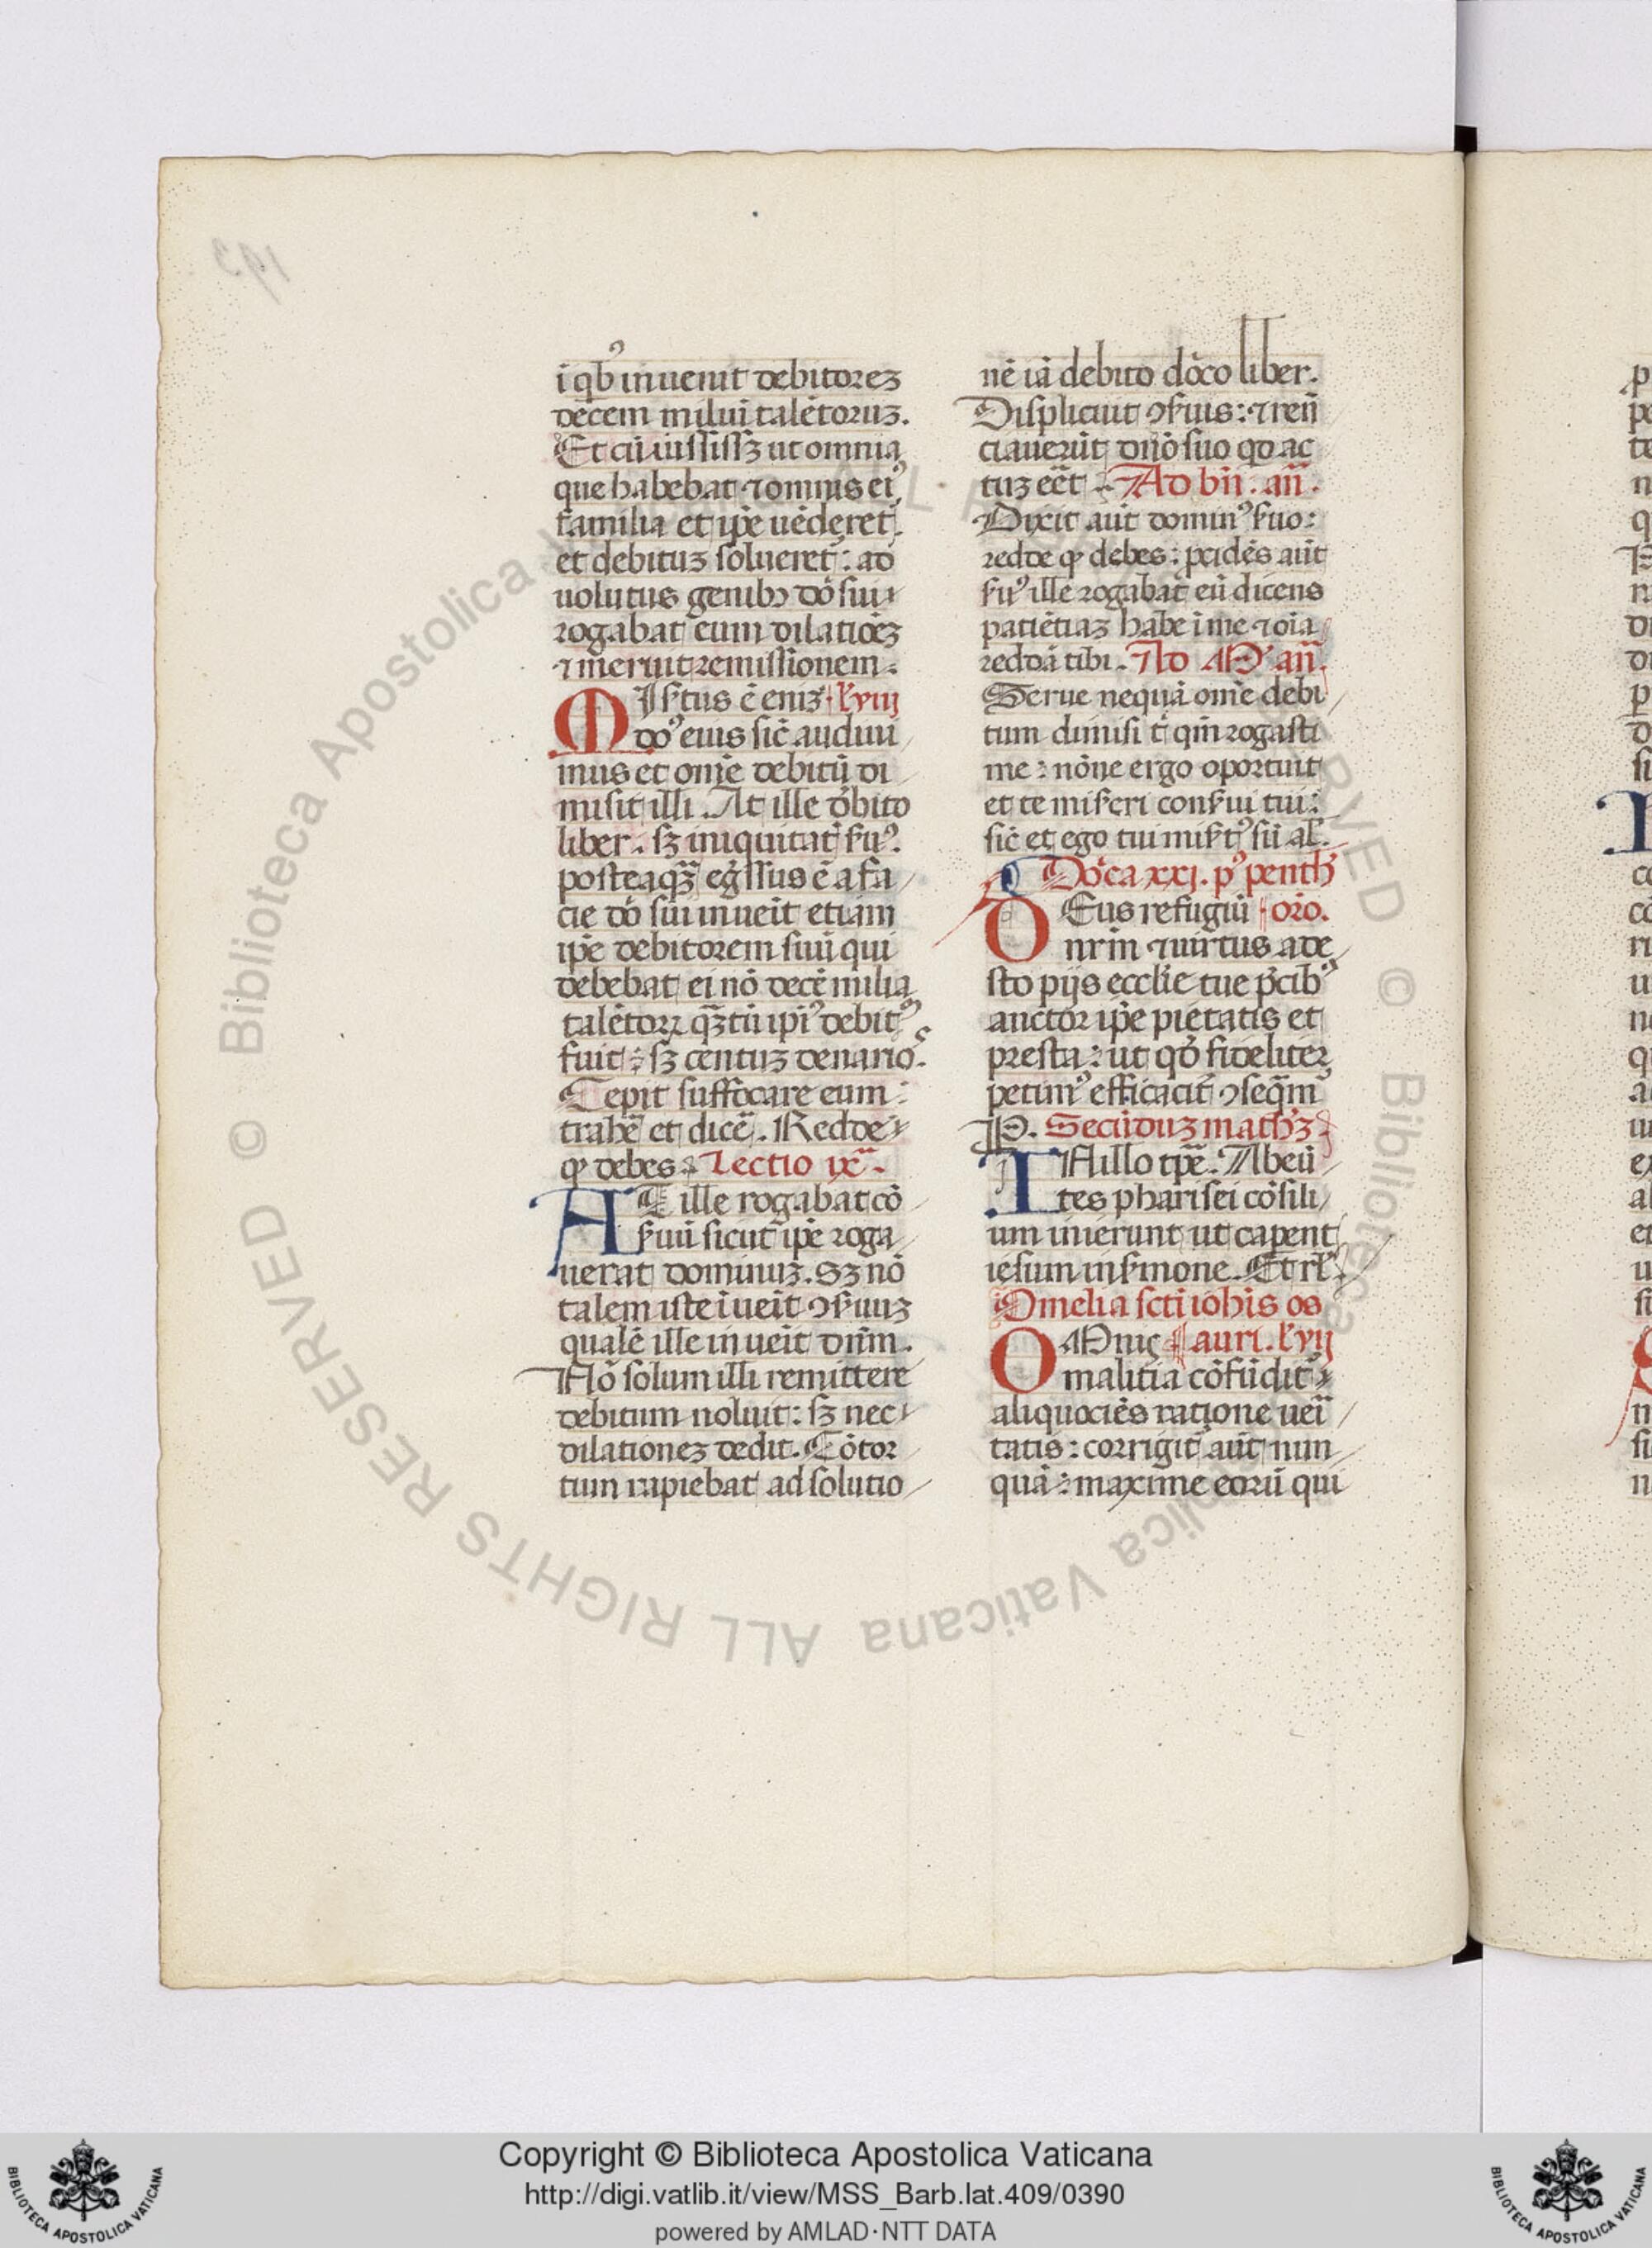 i qbꝰ inuenit debitoreꝫ
decem miluĩ talẽtoruꝫ.
Et cũ iussissꝫ ut omnia
que habebat ⁊ omnis eiꝰ
familia et ip̃e uẽderet̃.
et debituꝫ solueret̃: ad
uolutus genibꝫ dõ sui
rogabat eum dilatiõeꝫ
⁊ meruit remissionem.
MIsertus ẽ eniꝫ. l. viij
dõꝰ eiuis sic̃ audiui
mus et om̃e debitũ di
misit illi. At ille d̃bito
liber. sꝫ iniquitat̃ s̃uꝰ.
posteaqꝫ̃ eg̃ssus ẽ a fa
cie dõ sui inueĩt etiam
ip̃e debitorem suũ qui
debebat ei nõ decẽ milia
talẽtoꝝ qꝫ̃tũ ip̃iꝰ debitꝰ
fuit: sꝫ centuꝫ denarios.
Cepit suffocare eum:
trahẽ et dicẽ. Redde
qꝫ debes. Lectio ix.ᵃ
AT ille rogabat cõ
s̃uũ sicut ip̃e roga
uerat dominuꝫ. Sꝫ nõ
talem iste ĩueĩt ꝯs̃uuꝫ
qualẽ ille inueĩt dñm.
Nõ solum illi remittere
debitum noluit: sꝫ nec
dilationeꝫ dedit. Cõtor
tum rapiebat ad solutio
nẽ iã debito dõco liber.
Displicuit ꝯs̃uis: ⁊ renũ
ciauerũt dño suo qd ac
tuꝫ eẽt. Ad bñ. añ.
Dixit aũt dominꝰ s̃uo:
redde qꝫ debes: p̃cidẽs aũt
s̃uꝰ ille rogabat eũ dicens
patiẽtiaꝫ habe ĩ me ⁊ oĩa
reddã tibi. Ad M̃ añ.
Serue nequã om̃e debi
tum dimisi t̃ qm̃ rogasti
me: nõne ergo oportuit
et te miseri conserui tui:
sic̃ et ego tui mis̃tꝰ sũ al̃.
Dõca xxj. pꝰ penth̃
DEus refugiũ oro.
nrm̃ ⁊ uirtus ade
sto pijs eccl̃ie tue p̃cibꝰ
auctor ip̃e pietatis et
presta: ut qd̃ fideliter
petimꝰ efficacit̃ ꝯseq̃mꝰ
P. Secũduꝫ math̃ꝫ
IN illo tp̃e. Abeũ
tes pharisei cõsili
um inierunt ut capent
iesum in s̃mone. Et rl̃.
Omelia sc̃ti ioh̃is os
OMnis auri. l. vij
malitia cõfũditꝰ
aliquociẽs ratione ueĩ
tatis: corrigit̃ aũt nun
quã: maxime eorũ qui
Copyright © Biblioteca Apostolica Vaticana
http://digi.vatlib.it/view/MSS_Barb.lat.409/0390
powered by AMLAD·NTT DATA